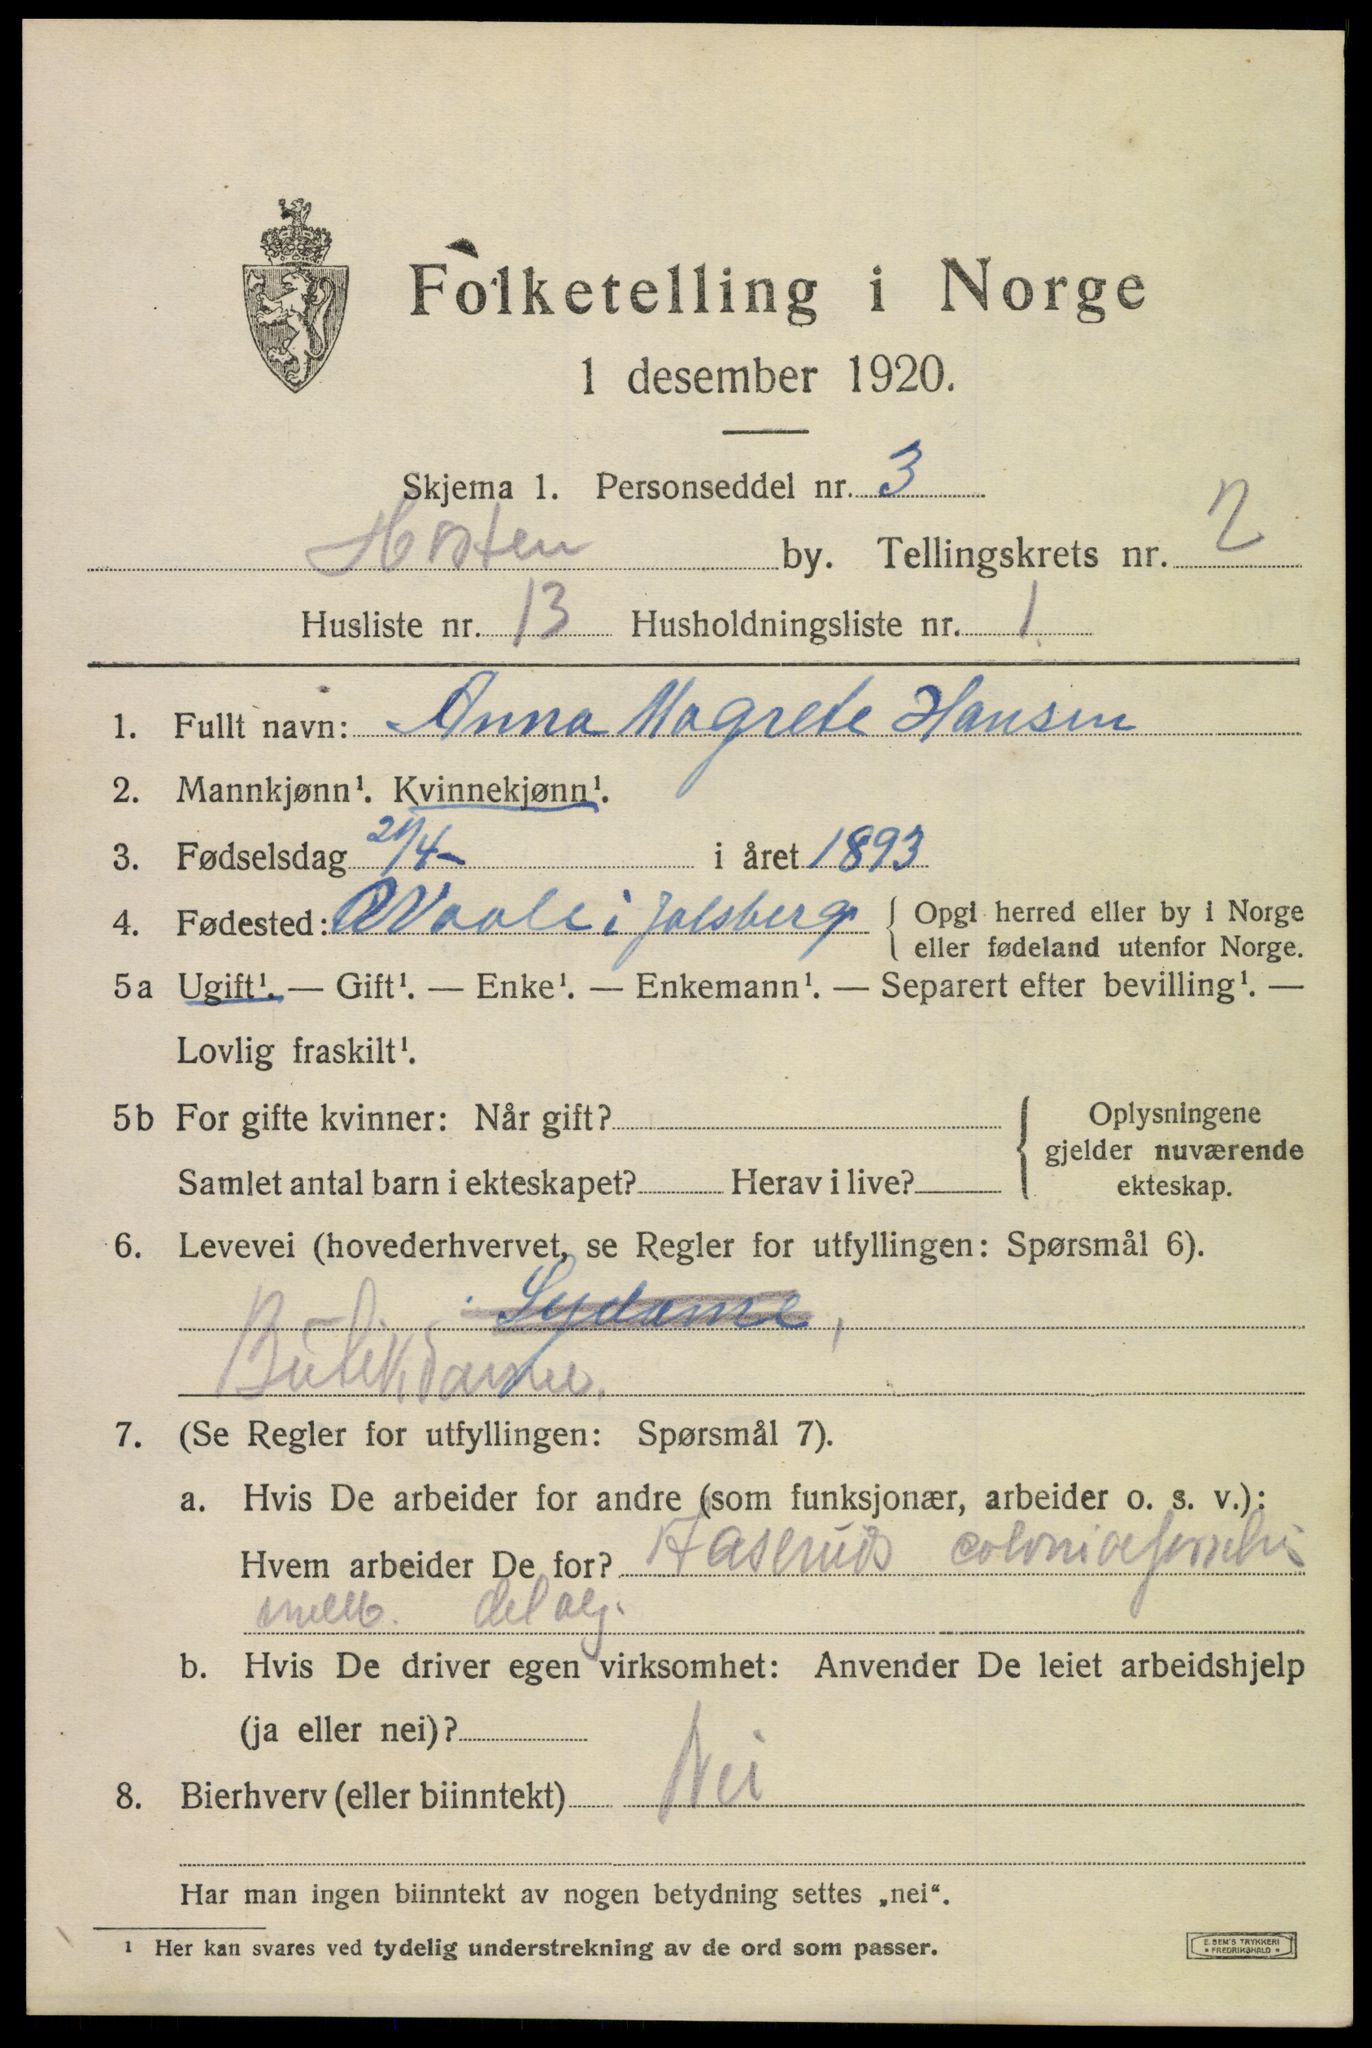 Folketelling i Norge
1 desember 1920.
Skjema 1. Personseddel nr. 3
Horten by. Tellingskrets nr. 2
Husliste nr. 13 Husholdningsliste nr. 1
1. Fullt navn: Anna Magrete Hansen
2. Mannkjønn¹. Kvinnekjønn¹.
3. Fødselsdag 21/4- i året 1893
4. Fødested: Vaale i Jalsberg { Opgi herred eller by i Norge
eller fødeland utenfor Norge.
5a Ugift¹. — Gift¹. — Enke¹. — Enkemann¹. — Separert efter bevilling¹. —
Lovlig fraskilt¹.
5b For gifte kvinner: Når gift? { Oplysningene
gjelder nuværende
ekteskap.
Samlet antal barn i ekteskapet? Herav i live?
6. Levevei (hovederhvervet, se Regler for utfyllingen: Spørsmål 6).
Sydame,
Butikdame.
7. (Se Regler for utfyllingen: Spørsmål 7).
a. Hvis De arbeider for andre (som funksjonær, arbeider o. s. v.):
Hvem arbeider De for? Aaseruds
b. Hvis De driver egen virksomhet: Anvender De leiet arbeidshjelp
(ja eller nei)?
8. Bierhverv (eller biinntekt) Nei
Har man ingen biinntekt av nogen betydning settes „nei“.
¹ Her kan svares ved tydelig understrekning av de ord som passer.
E. SEM'S TRYKKERI
FREDRIKSHALD